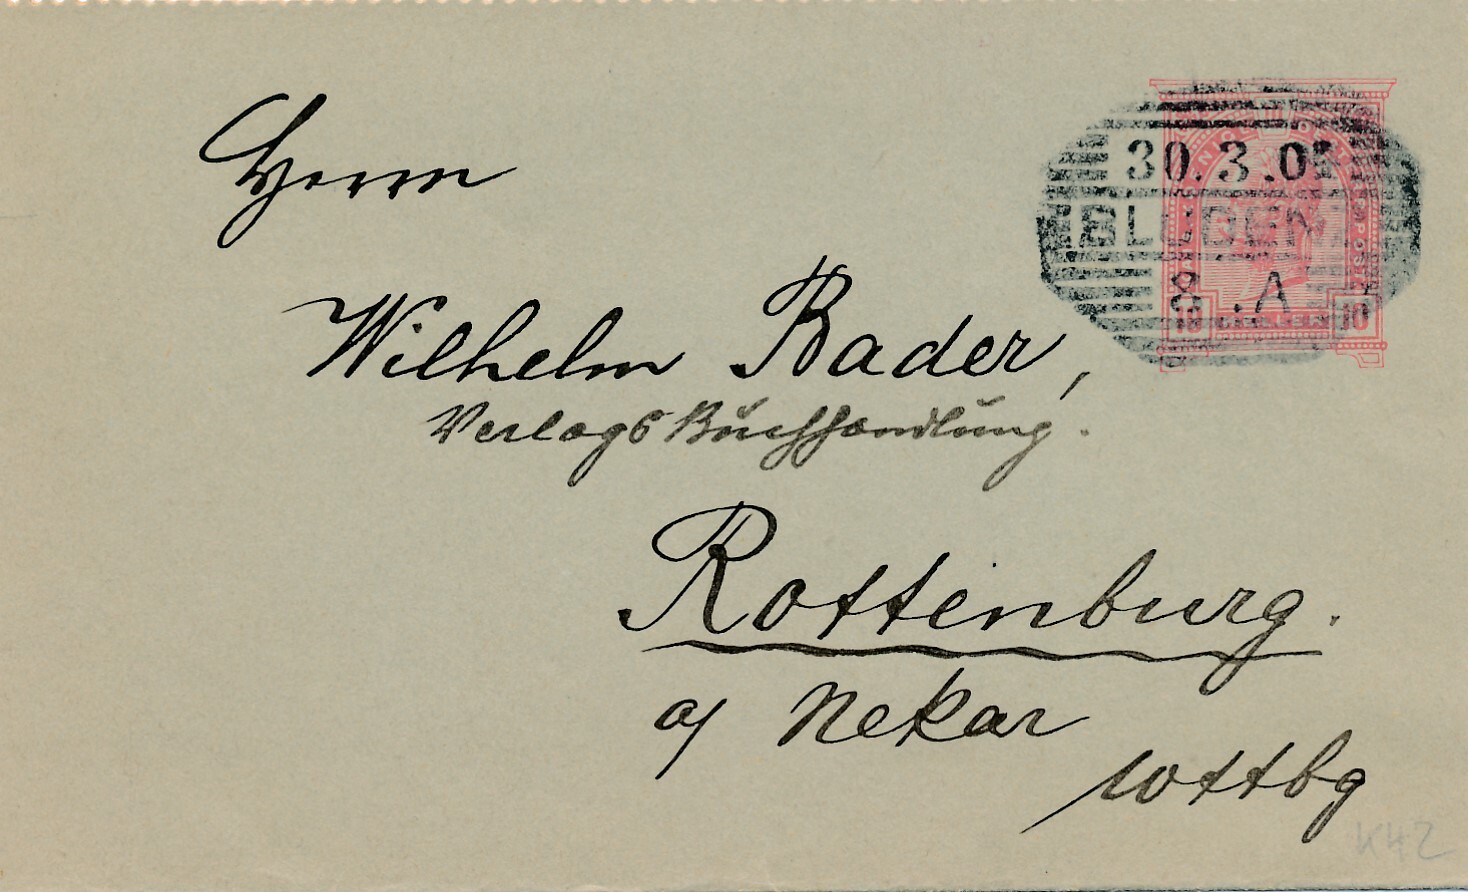 Herrn
Wilhelm Bader,
Verlags Buchhandlung.
Rottenburg.
a/ Nekar
Wttbg
30.3.05
BLUDENZ
8 .A
10 HELLER 10
K42